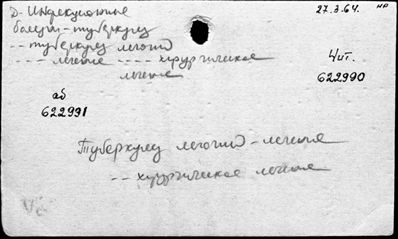 Д- Инфекционные
болезни - туберкулез
-- туберкулез легких
---- лечение ---- хирургическое
лечение
27.3.64. нр
Чит.
622990
аб
622991
Туберкулез легких - лечение
-- хирургическое лечение